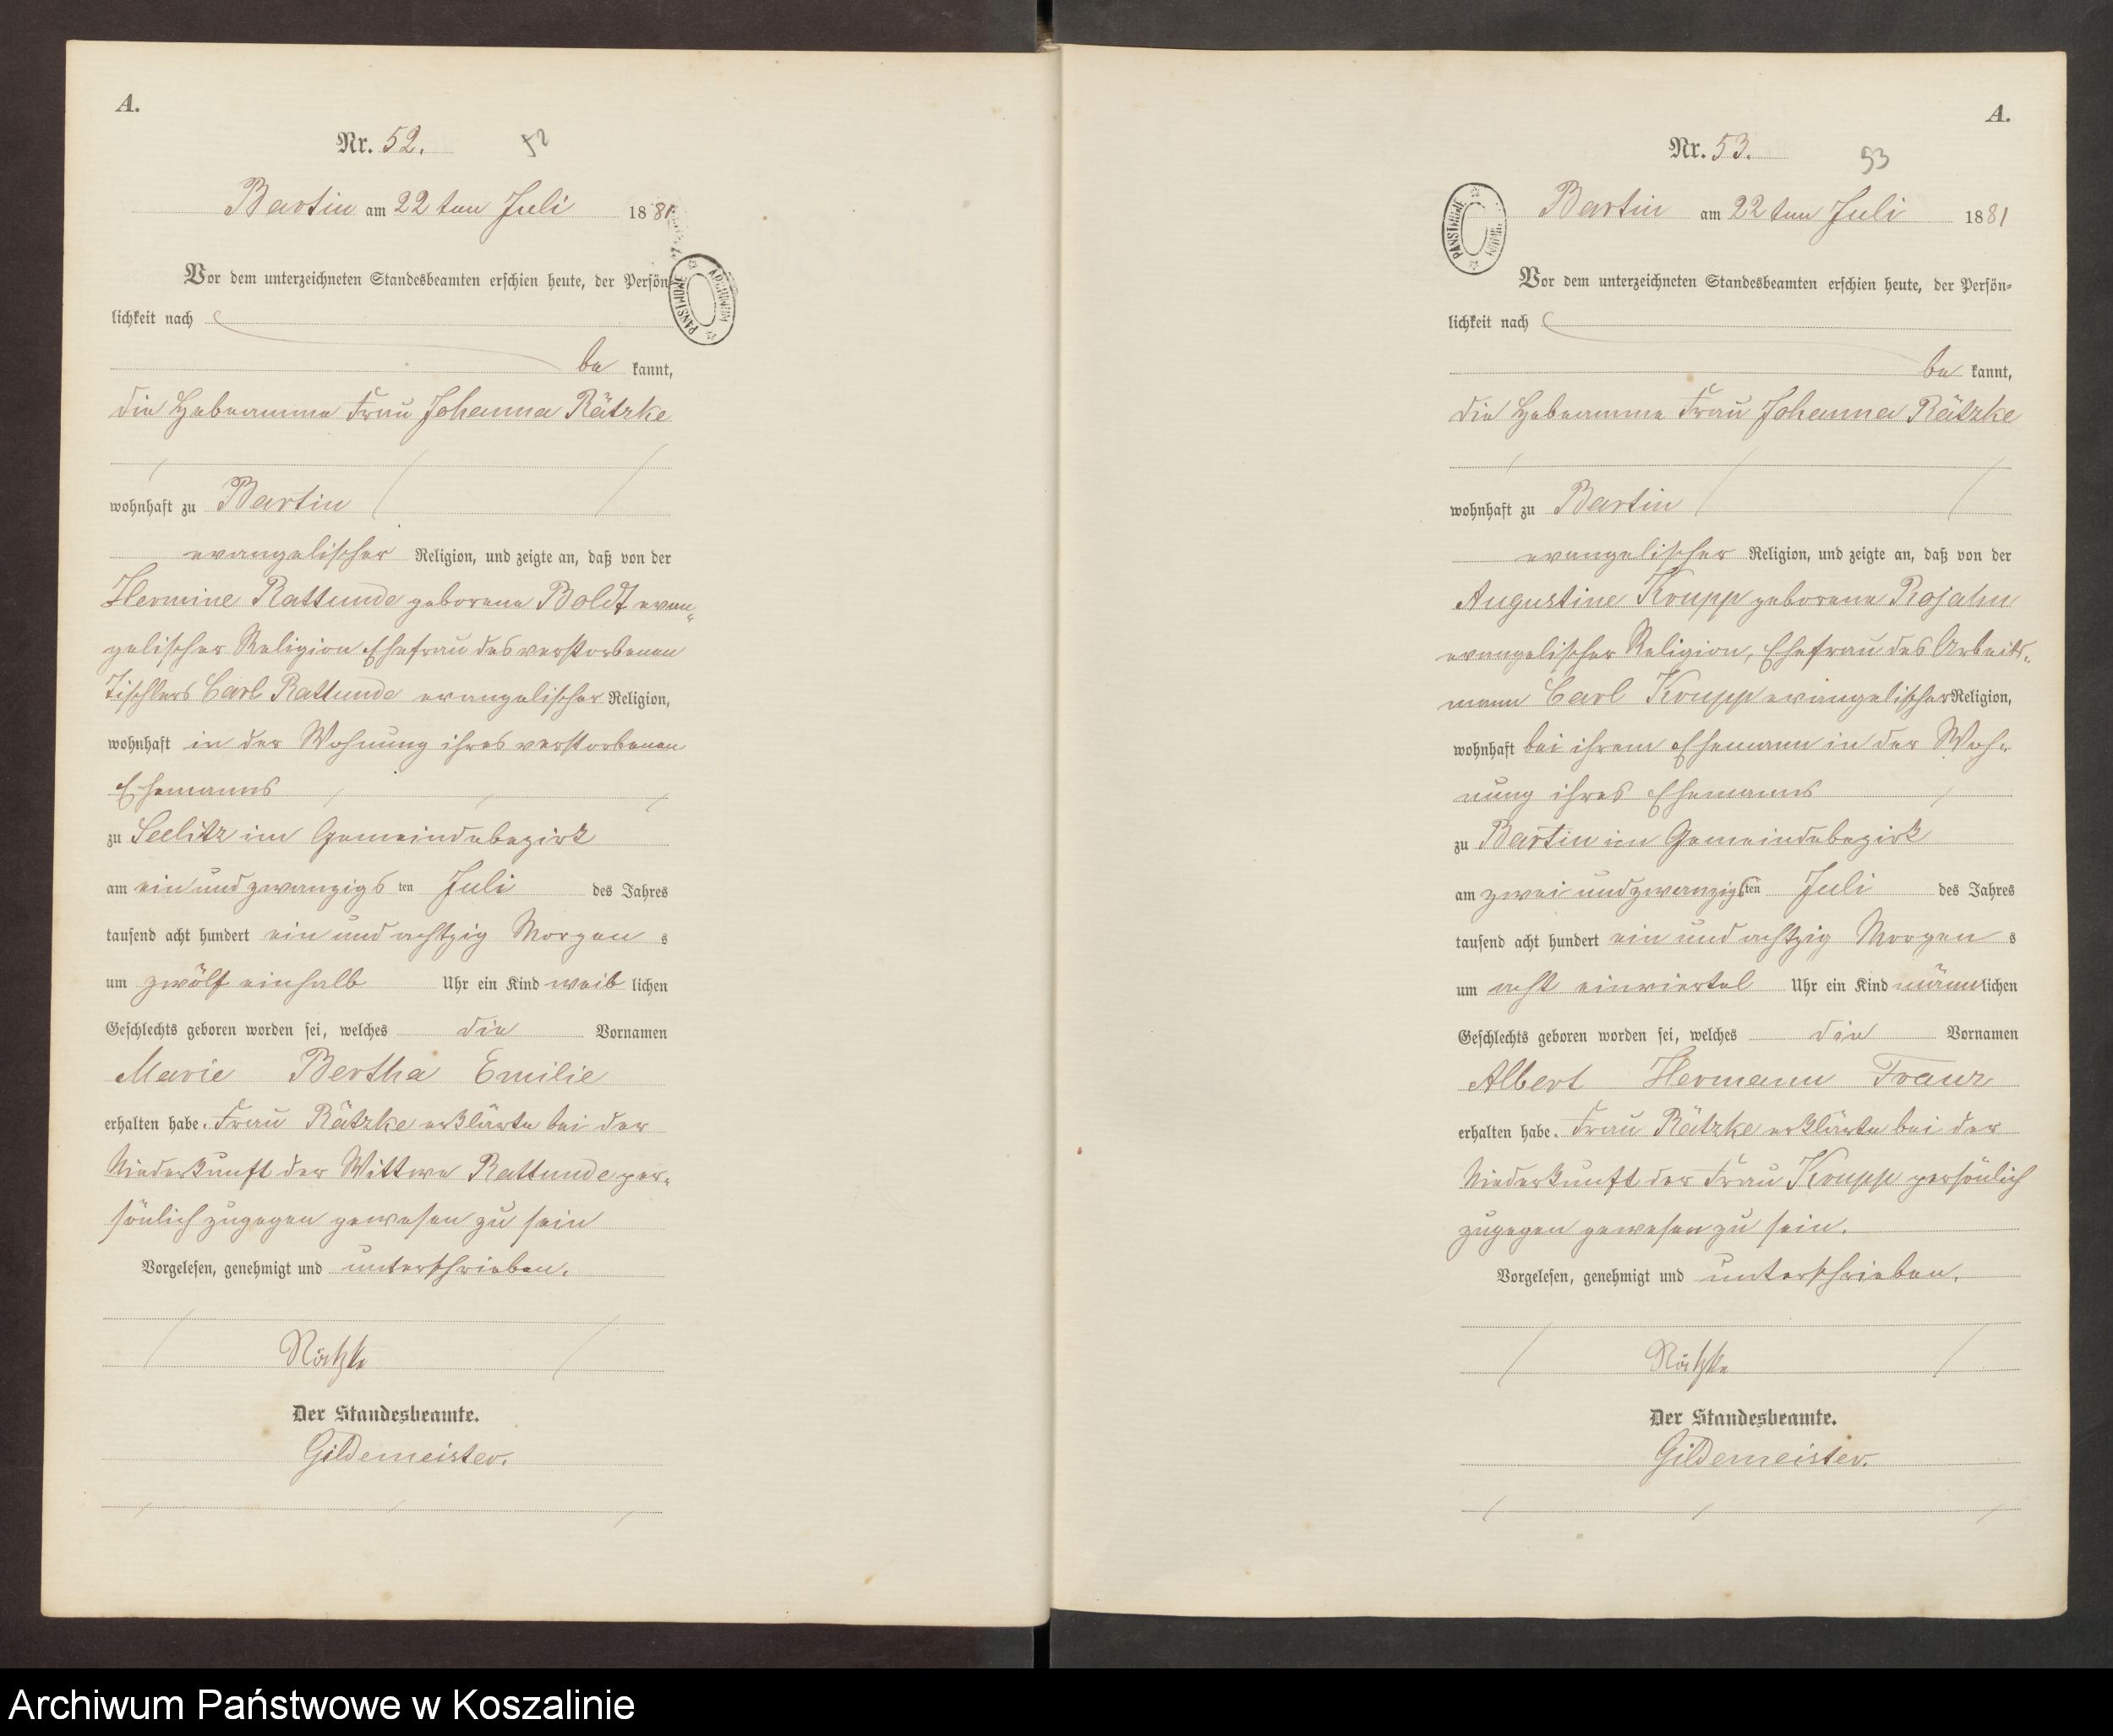 A.
Nr. 52.
52
Bartin am 22ten Juli 1881
Vor dem unterzeichneten Standesbeamten erschien heute, der Persön-
lichkeit nach
be kannt,
die Hebeamme Frau Johanna Rätzke
wohnhaft zu Bartin
evangelischer Religion, und zeigte an, daß von der
Hermine Rattunde geborene Boldt evan-
gelischer Religion Ehefrau des verstorbenen
Tischlers Carl Rattunde evangelischer Religion,
wohnhaft in der Wohnung ihres verstorbenen
Ehemanns
zu Seelitz im Gemeindebezirk
am ein und zwanzigs ten Juli des Jahres
tausend acht hundert ein und achtzig Morgen s
um zwölf einhalb Uhr ein Kind weib lichen
Geschlechts geboren worden sei, welches die Vornamen
Marie Bertha Emilie
erhalten habe. Frau Rätzke erklärte bei der
Niederkunft der Wittwe Rattunde per-
sönlich zugegen gewesen zu sein
Vorgelesen, genehmigt und unterschrieben.
Rätzke
Der Standesbeamte.
Gildemeister.
PAŃSTWOWE ARCHIWUM
A.
Nr. 53.
53
Bartin am 22ten Juli 1881
PAŃSTWOWE
Vor dem unterzeichneten Standesbeamten erschien heute, der Persön-
lichkeit nach
be kannt,
die Hebeamme Frau Johanna Rätzke
wohnhaft zu Bartin
evangelischer Religion, und zeigte an, daß von der
Augustine Krupp geborene Rojahn
evangelischer Religion, Ehefrau des Arbeits-
mann Carl Krupp evangelischer Religion,
wohnhaft bei ihrem Ehemann in der Woh-
nung ihres Ehemanns
zu Bartin im Gemeindebezirk
am zwei und zwanzigs ten Juli des Jahres
tausend acht hundert ein und achtzig Morgen s
um acht einviertel Uhr ein Kind männ lichen
Geschlechts geboren worden sei, welches die Vornamen
Albert Hermann Franz
erhalten habe. Frau Rätzke erklärte bei der
Niederkunft der Frau Krupp persönlich
zugegen gewesen zu sein.
Vorgelesen, genehmigt und unterschrieben.
Rätzke
Der Standesbeamte.
Gildemeister.
Archiwum Państwowe w Koszalinie